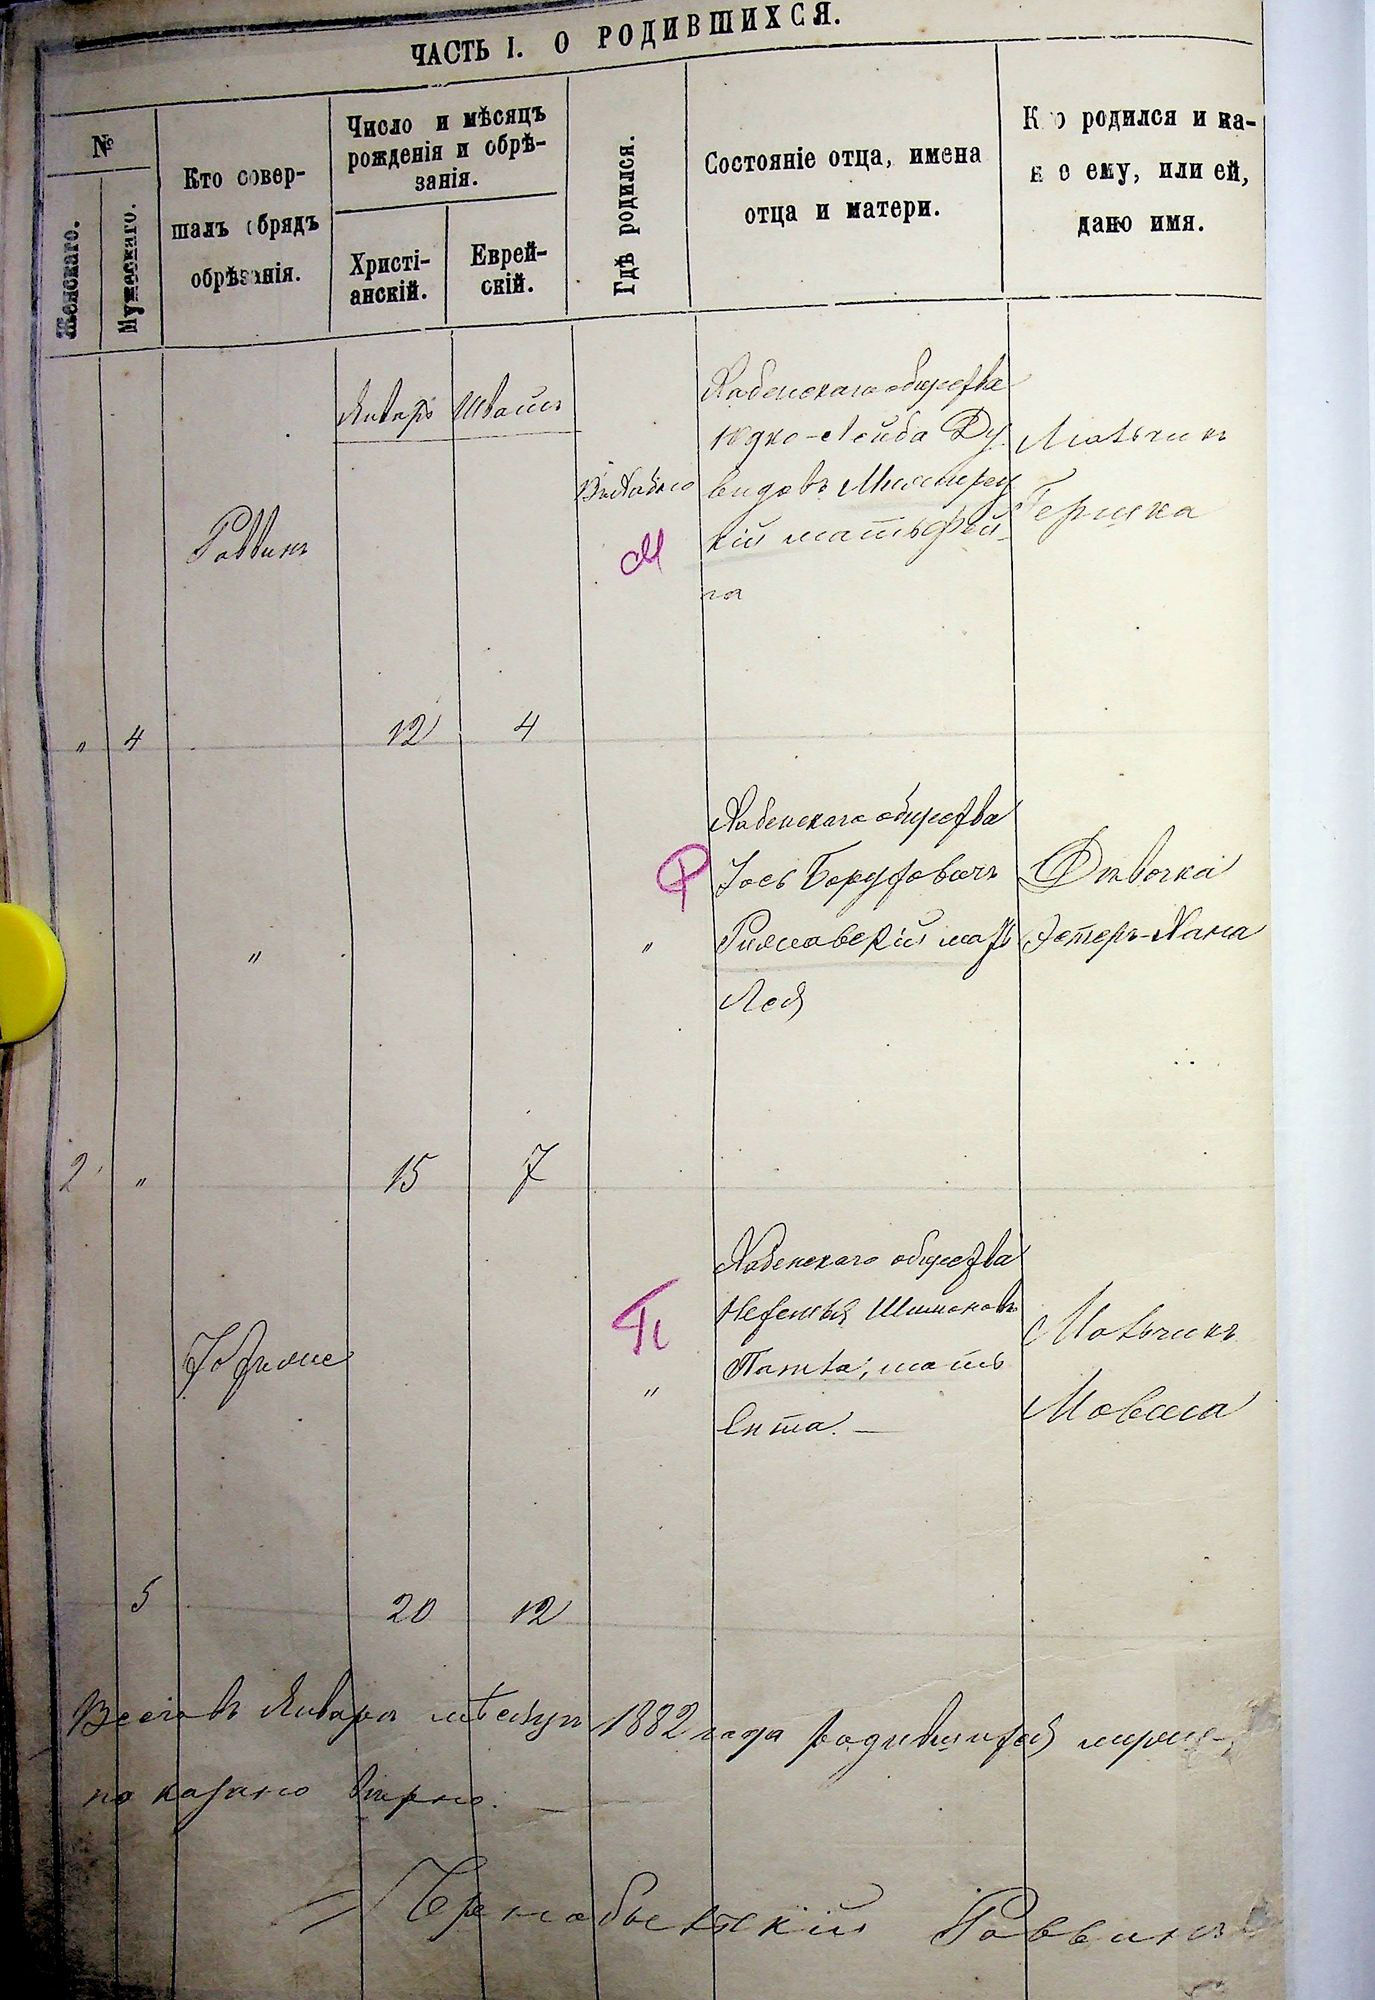 ЧАСТЬ I. О РОДИВШИХСЯ.
№
Женскаго.
Мужескаго.
Кто совер-
шалъ обрядъ
обрѣзанія.
Число и мѣсяцъ
рожденія и обрѣ-
занія.
Христі-
анскій.
Еврей-
скій.
Гдѣ родился.
Состояніе отца, имена
отца и матери.
Кто родился и ка-
кое ему, или ей,
дано имя.
Январь
Раввинъ
М
Хабенскаго общества
Юдко-Лейба Ду
видовъ
кій мать Фей
га
Мальчикъ
Гершка
" 4 12 4
"
Р
"
Хабенскаго общества
Іось Боруховичъ
мать
Лея
Дѣвочка
Эстеръ-Хана
2 " 15 7
П
"
Хабенскаго общества
Нехемья Шимоновъ
мать
Ента.
Мальчикъ
Мовша
5 20 12
Всего въ Январѣ мѣсяцѣ 1882 года родившихся
показано вѣрно.
Раввинъ